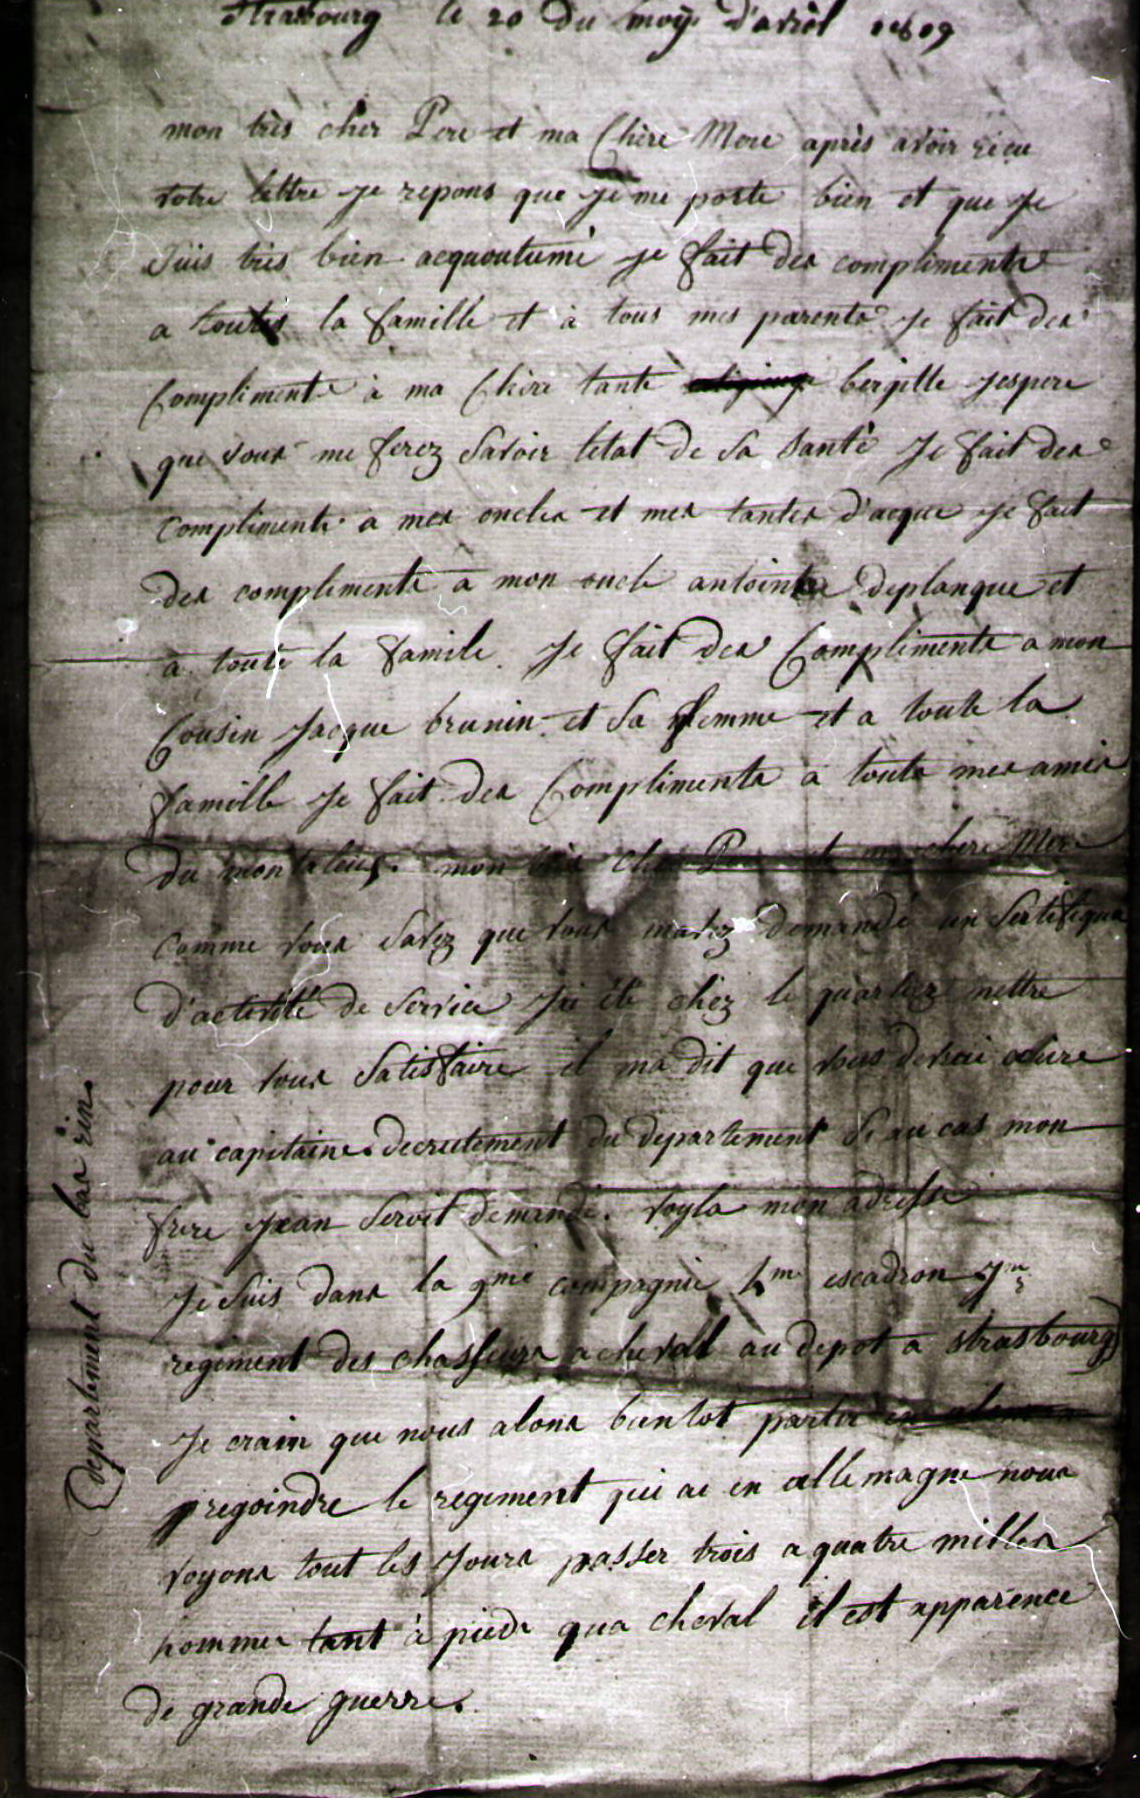 Strasbourg le 20 du moy d'avril 1809
mon très cher Pere et ma Chère Mere après avoir recu
votre lettre je repons que je me porte bien et que je
Suis très bien acquoutumé je fait des compliments
a toutes la famille et à tous mes parents je fait des
Compliments à ma Chère tante bergitte jespere
que vous me ferez Savoir letat de Sa Santé Je fait des
compliments a mes oncles et mes tantes d'acque je fait
des compliments a mon oncle antoine deplanque et
a toute la famile. Je fait des Compliments a mon
Cousin Jacque brunin et Sa femme et a toute la
famille Je fait des Compliments a touts mes amis
du mon mon cher P et chere Mere
comme vous Savez que vous mavez demandé un Sertifiqua
d'activité de Service Jai été chez le quartiez mettre
pour vous Satisfaire il ma dit que vous devai
au capitaine decrutement du departement Si au cas mon
frere Jean Seroit demandé. voyla mon adresse
Je Suis dans la 9me compagnie 4me escadron 7me
regiment des chasseurs a cheval au depot a strasbourg
departement du bas rin
Je crain que nous alons bientot partir
regoindre le regiment qui ae en allemagne nous
voyons tout les Jours passer trois a quatre milles
hommes tant à pieds qua cheval il est apparence
de grande guerre.